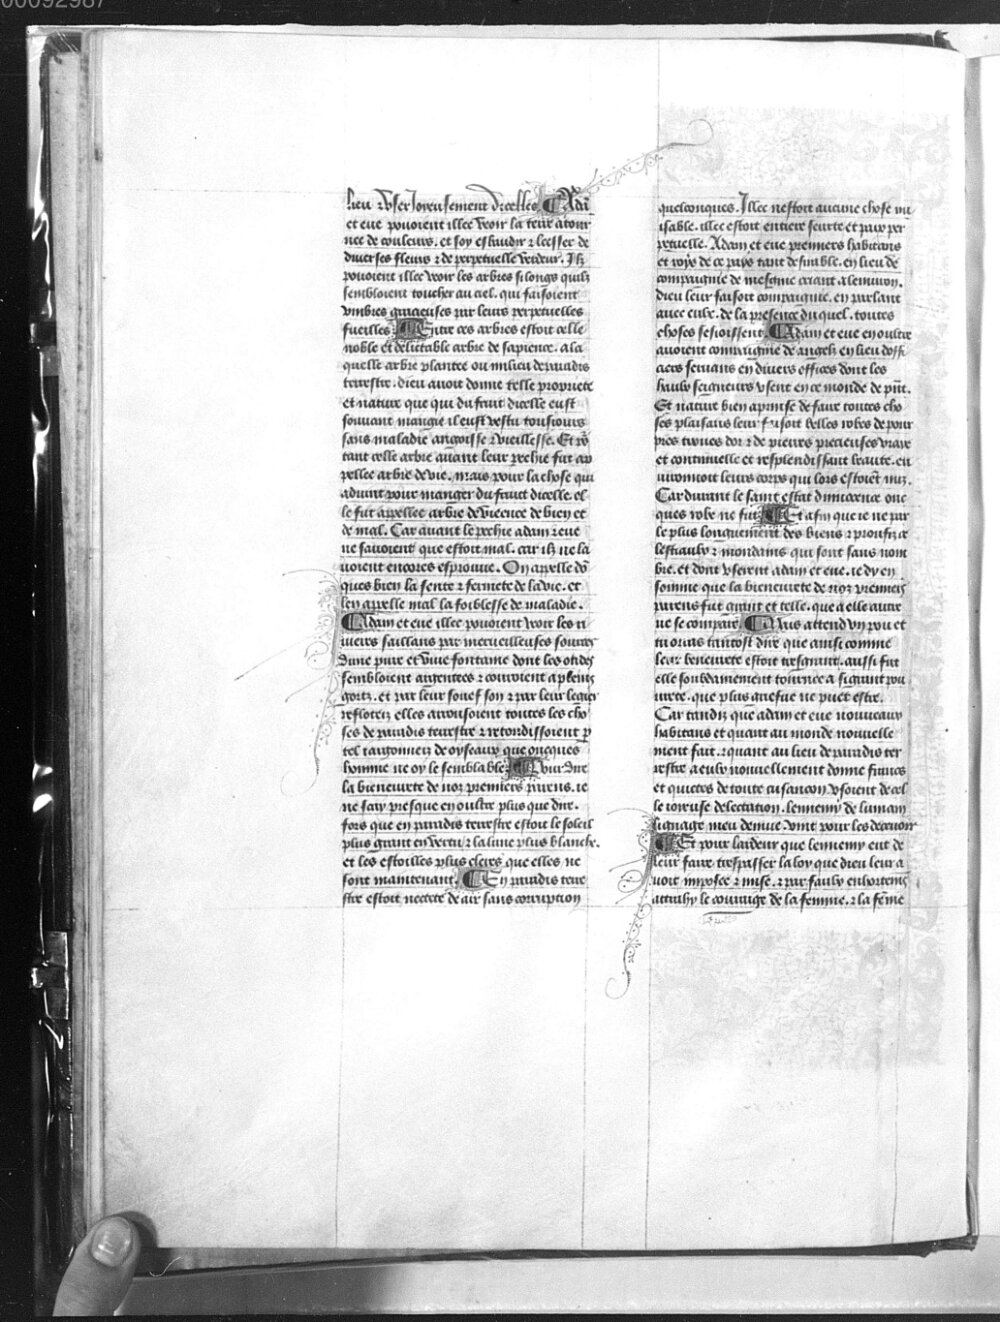 00092987
lieu ⁊ vser Ioyeusement dicelles ¶ Adā
et eue pouoient illec veoir la terre atour
nee de couleurs. et soy esbaudir ⁊ leesser de
diuerses fleurs ⁊ de perpetuelle verdeur. Ilz
pouoient illec veoir les arbres si longs quilz
sembloient toucher au ciel. qui faisoient
vmbres gracieuses par leurs perpetuelles
fueilles. ¶ Entre ces arbres estoit celle
noble et delictable arbre de sapience. a la
quelle arbre plantee ou milieu de paradis
terrestre. dieu auoit donne telle propriete
et nature que qui du fruit dicelle eust
souuant mangie il eust vescu tousiours
sans maladie angoisse ⁊ vieillesse. Et
tant celle arbre auant leur pechie fut ap
pellee arbre de vie. mais pour la chose qui
aduint pour manger du fruict dicelle. el
le fut appellee arbre de science de bien et
de mal. Car auant le pechie adam ⁊ eue
ne sauoient que estoit mal. car ilz ne la
uoient encores esprouue. On appelle dō
ques bien la sente ⁊ fermete de la vie. et
len appelle mal la foiblesse de maladie.
¶ Adam et eue illec pouoient veoir les ri
uieres saillans par merueilleuses sources
dune pure et viue fontaine dont les ondes
sembloient argentees ⁊ couroient a pleins
gortz. et par leur souef son ⁊ par leur legier
refloteiz elles arrousoient toutes les cho
ses de paradis terrestre ⁊ retondissoient p̄
tel iargonneiz de oyseaux que oncques
homme ne oy le semblable ¶ Pour dire
la bieneurete de noz premiers parens. ie
ne scay presque en oultre plus que dire.
fors que en paradis terrestre estoit le soleil
plus grant en vertu ⁊ la lune plus blanche.
et les estoilles plus cleres que elles ne
sont maintenant. ¶ En paradis terre
stre estoit nectete de air sans corruption
quelconques. Illec nestoit aucune chose nu
isable. illec estoit entiere seurte et paix per
petuelle. Adam et eue premiers habitans
et roys de ce pays tant desirable. en lieu de
compaignie de mesgnie criant a lenuiron.
dieu leur faisoit compaignie. en parlant
auec eulx. de la presence duquel. toutes
choses sesioissent. ¶ Adam et eue en oultre
auoient compaignie de angelz en lieu doffi
ciers seruans en diuers offices dont les
haulx seigneurs vsent en ce monde de pn̄t.
Et nature bien aprinse de faire toutes cho
ses plaisans leur faisoit belles robes de pour
pres tixues dor ⁊ de pierres precieuses vraye
et continuelle et resplendissant beaute. en
uironnoit leurs corps qui lors estoiēt nuz.
Car durant le saint estat dinnocence onc
ques robe ne fut ¶ Et afin que ie ne par
le plus longuement des biens ⁊ proufiz ce
lestiaulx ⁊ mondains qui sont sans nom
bre. et dont vserent adam et eue. ie dy en
somme que la bieneurete de noz premiers
parens fut grant et telle. que a elle autre
ne se compare ¶ Mais attend vn pou et
tu orras tantost dire que ainsi comme
leur beneurete estoit tresgrant. aussi fut
elle soubdainement tournee a si grant pou
urete. que plus griefue ne puet estre.
Car tandiz que adam et eue nouueaux
habitans et quant au monde nouuelle
ment fait. ⁊ quant au lieu de paradis ter
restre a eulx nouuellement donne francs
et quictes de toute cusancon vsoient de cel
le ioyeuse delectation. lennemy de lumain
lignage meu denuie. vint pour les deceuoir
¶ Et pour lardeur que lennemy eut de
leur faire trespasser la loy que dieu leur a
uoit imposee ⁊ mise. ⁊ par faulx enhortemens
attrahy le couraige de la femme. ⁊ la fēme